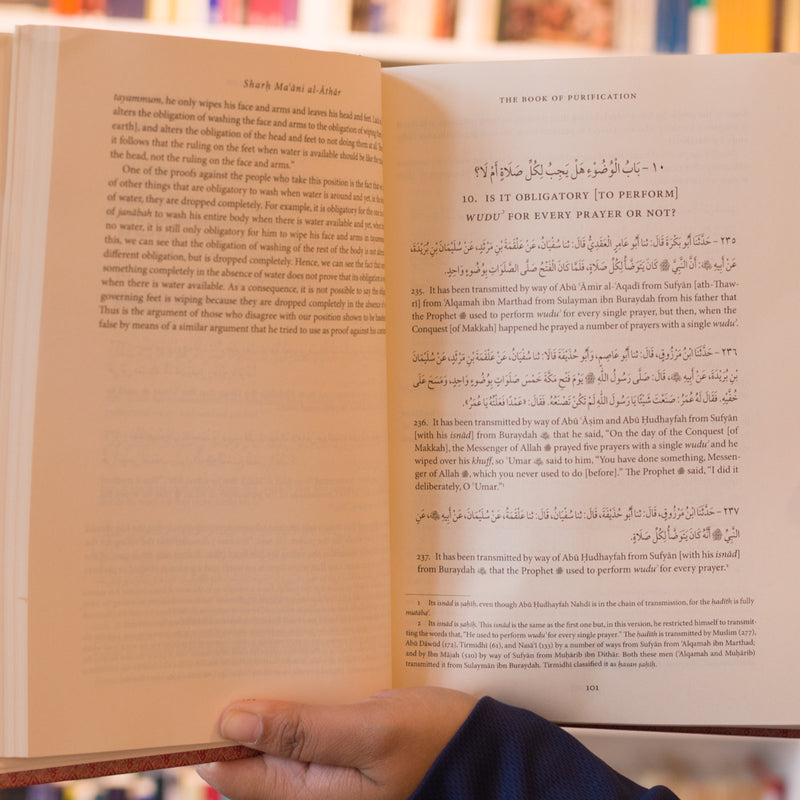 Sharḥ Maʿāni al-Āthār
tayammum, he only wipes his face and arms and leaves his head and feet.
alters the obligation of washing the face and arms to the obligation of wiping
earth], and alters the obligation of the head and feet to not doing them at all.
it follows that the ruling on the feet when water is available should be like the
the head, not the ruling on the face and arms."
One of the proofs against the people who take this position is the fact that
of other things that are obligatory to wash when water is around and yet, in the
of water, they are dropped completely. For example, it is obligatory for the
of janābah to wash his entire body when there is water available and yet, when
no water, it is still only obligatory for him to wipe his face and arms in
this, we can see that the obligation of washing of the rest of the body is not
different obligation, but is dropped completely. Hence, we can see the fact that
something completely in the absence of water does not prove that its obligation
when there is water available. As a consequence, it is not possible to say the
governing feet is wiping because they are dropped completely in the absence
Thus is the argument of those who disagree with our position shown to be
false by means of a similar argument that he tried to use as proof against his
THE BOOK OF PURIFICATION
١٠ – بَابُ الْوُضُوْءِ هَلْ يَجِبُ لِكُلِّ صَلَاةٍ أَمْ لَا؟
10. IS IT OBLIGATORY [TO PERFORM]
WUDUʾ FOR EVERY PRAYER OR NOT?
٢٣٥ – حَدَّثَنَا أَبُو بَكْرَةَ قَالَ: ثنا أَبُو عَامِرٍ الْعَقَدِيُّ قَالَ: ثنا سُفْيَانُ، عَنْ عَلْقَمَةَ بْنِ مَرْثَدٍ، عَنْ سُلَيْمَانَ بْنِ بُرَيْدَةَ،
عَنْ أَبِيهِ ﷺ: أَنَّ النَّبِيَّ ﷺ كَانَ يَتَوَضَّأُ لِكُلِّ صَلَاةٍ، فَلَمَّا كَانَ الْفَتْحُ صَلَّى الصَّلَوَاتِ بِوُضُوءٍ وَاحِدٍ.
235. It has been transmitted by way of Abū ʿĀmir al-ʿAqadi from Sufyān [ath-Thaw-
ri] from ʿAlqamah ibn Marthad from Sulayman ibn Buraydah from his father that
the Prophet ﷺ used to perform wuduʾ for every single prayer but then, when the
Conquest [of Makkah] happened he prayed a number of prayers with a single wuduʾ.
٢٣٦ – حَدَّثَنَا ابْنُ مَرْزُوقٍ، قَالَ: ثنا أَبُو عَاصِمٍ، وَأَبُو حُذَيْفَةَ قَالَا: ثنا سُفْيَانُ، عَنْ عَلْقَمَةَ بْنِ مَرْثَدٍ، عَنْ سُلَيْمَانَ
بْنِ بُرَيْدَةَ، عَنْ أَبِيهِ، قَالَ: صَلَّى رَسُولُ اللَّهِ ﷺ يَوْمَ فَتْحِ مَكَّةَ خَمْسَ صَلَوَاتٍ بِوُضُوءٍ وَاحِدٍ، وَمَسَحَ عَلَى
خُفَّيْهِ. فَقَالَ لَهُ عُمَرُ: صَنَعْتَ شَيْئًا يَا رَسُولَ اللَّهِ لَمْ تَكُنْ تَصْنَعُهُ. فَقَالَ: «عَمْدًا فَعَلْتُهُ يَا عُمَرُ».
236. It has been transmitted by way of Abū ʿĀṣim and Abū Ḥudhayfah from Sufyān
[with his isnād] from Buraydah that he said, "On the day of the Conquest [of
Makkah], the Messenger of Allah ﷺ prayed five prayers with a single wuduʾ and he
wiped over his khuff, so ʿUmar said to him, "You have done something, Messen-
ger of Allah ﷺ, which you never used to do [before]." The Prophet ﷺ said, "I did it
deliberately, O ʿUmar."¹
٢٣٧ – حَدَّثَنَا ابْنُ مَرْزُوقٍ، قَالَ: ثنا أَبُو حُذَيْفَةَ، قَالَ: ثنا سُفْيَانُ، قَالَ: ثنا عَلْقَمَةُ، عَنْ سُلَيْمَانَ، عَنْ أَبِيهِ، عَنِ
النَّبِيِّ ﷺ أَنَّهُ كَانَ يَتَوَضَّأُ لِكُلِّ صَلَاةٍ.
237. It has been transmitted by way of Abū Ḥudhayfah from Sufyān [with his isnād]
from Buraydah that the Prophet ﷺ used to perform wuduʾ for every prayer.²
1 Its isnād is ṣaḥīḥ, even though Abū Ḥudhayfah Nahdī is in the chain of transmission, for the ḥadīth is fully
mutābaʿ.
2 Its isnād is ṣaḥīḥ. This isnād is the same as the first one but, in this version, he restricted himself to transmit-
ting the words that, "He used to perform wuduʾ for every single prayer." The ḥadīth is transmitted by Muslim (277),
Abū Dāwūd (172), Tirmidhī (61), and Nasāʾī (133) by a number of ways from Sufyān from ʿAlqamah ibn Marthad;
and by Ibn Mājah (510) by way of Sufyān from Muḥārib ibn Dithār. Both these men (ʿAlqamah and Muḥārib)
transmitted it from Sulaymān ibn Buraydah. Tirmidhī classified it as ḥasan ṣaḥīḥ.
101